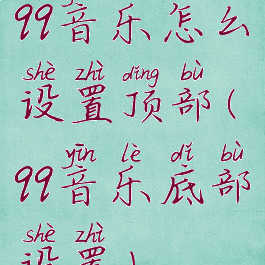 99音乐怎么
shè zhì dǐng bù
设置顶部(
yīn lè dǐ bù
99音乐底部
shè zhì
设置)